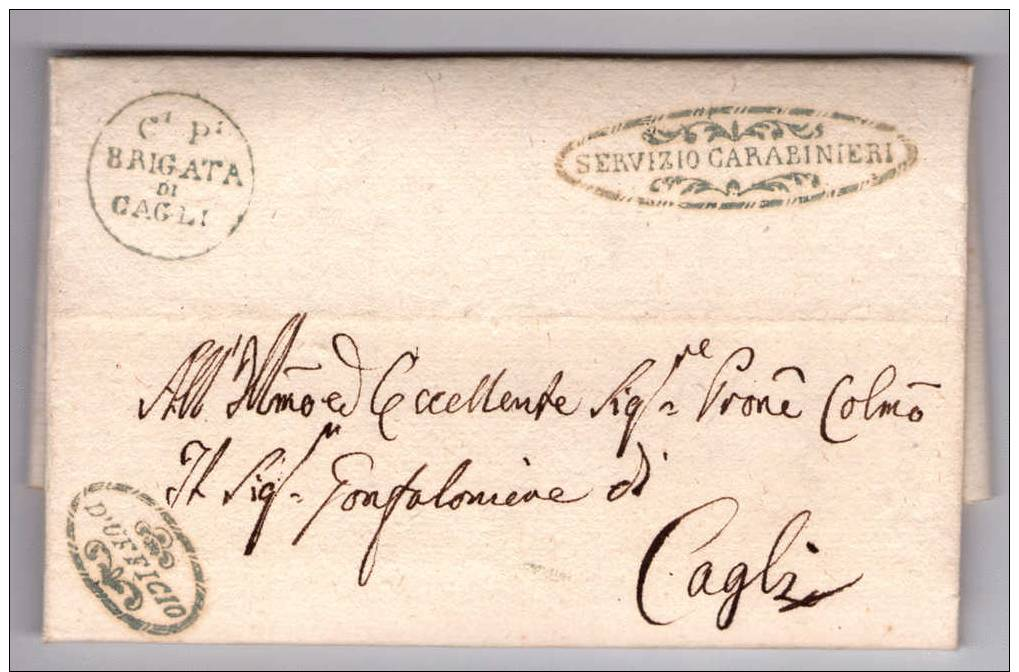 Cⁱ Pⁱ
BRIGATA
DI
CAGLI
SERVIZIO CARABINIERI
All'Illmo ed Eccellente Sigʳᵉ Prone Colmo
Il Sigʳ Gonfaloniere di
Cagli
D'UFFICIO